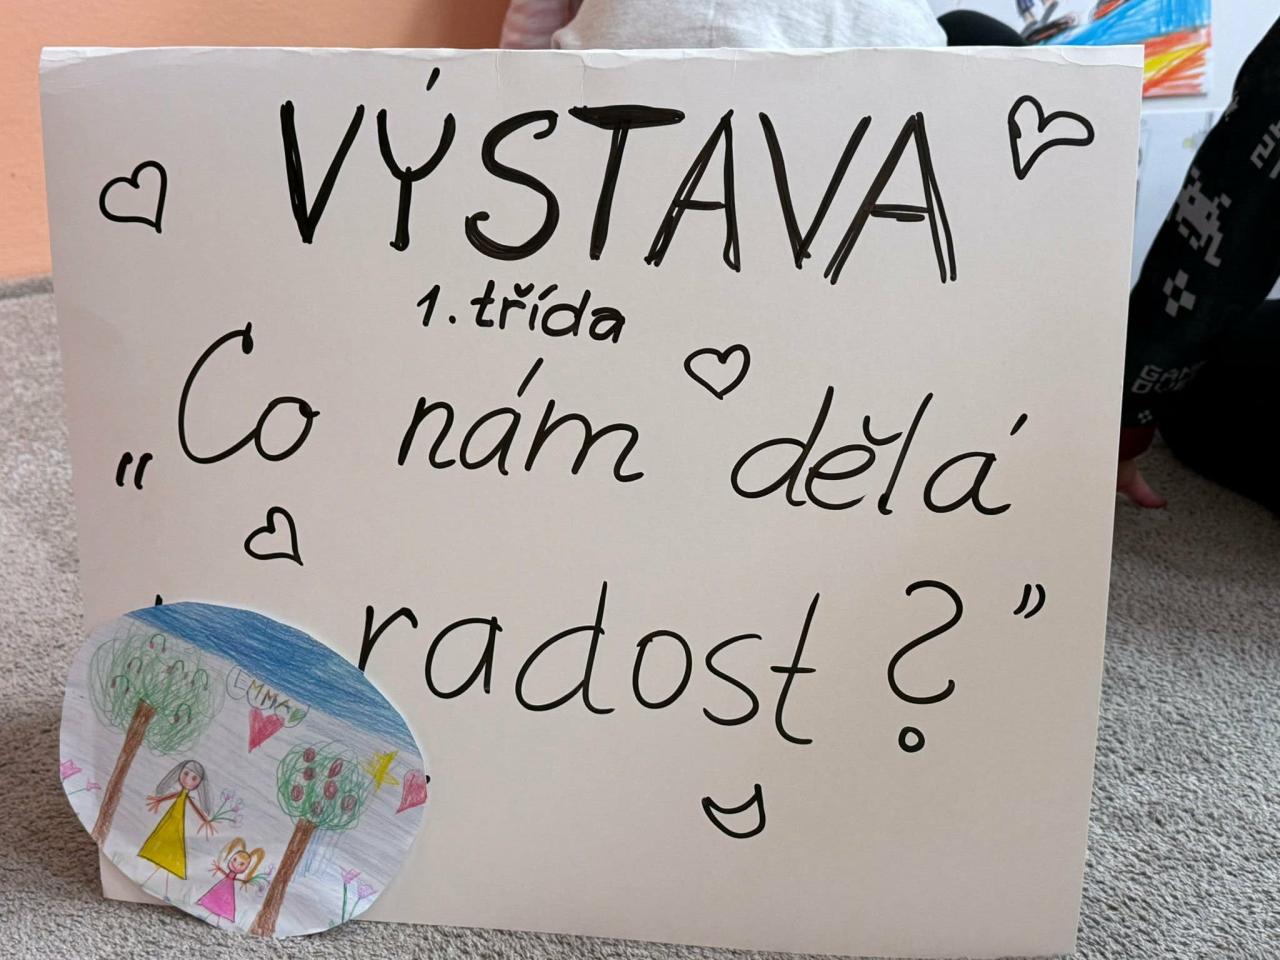 VÝSTAVA
1. třída
„Co nám dělá
radost?”
EMMA